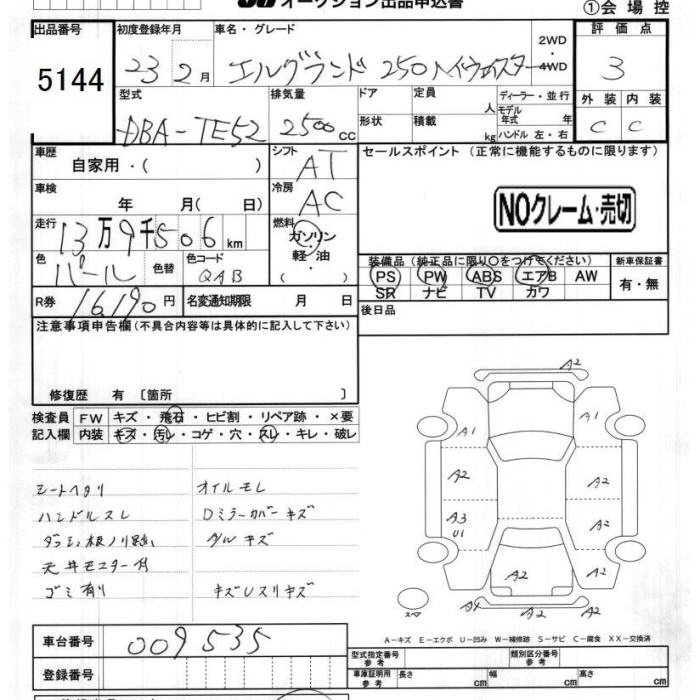 オークション出品申込書
①会場控
出品番号 5144
初度登録年月 23 2月
車名・グレード エルグランド 250ハイウェイスター
2WD・4WD
評価点 3
型式 DBA-TE52
排気量 2500cc
ドア 形状
定員 人
積載 kg
ディーラー・並行
モデル年式 年
ハンドル 左・右
外装 C 内装 C
車歴 自家用・( )
シフト AT
セールスポイント(正常に機能するものに限ります)
車検 年 月( 日)
冷房 AC
NOクレーム・売切
走行 13万9千506km
燃料 ガソリン・軽油・( )
色 パール 色替 色コード QAB
装備品(純正品に限り○をつけてください)
PS PW ABS エアB AW
SR ナビ TV カワ
新車保証書 有・無
R券 16,190円 名変通知期限 月 日
後日品
注意事項申告欄(不具合内容等は具体的に記入して下さい)
修復歴 有 〔箇所 〕
検査員記入欄
FW キズ・飛石・ヒビ割・リペア跡・×要
内装 キズ・汚レ・コゲ・穴・スレ・キレ・破レ
シートヘタリ オイルモレ
ハンドルスレ Dミラーカバーキズ
ダッシュ板ノリ跡 アルキズ
天井モニター付
ゴミ有り キズUスリキズ
A2
A1 A1
A2 A2
A3 U1 A2
A2 A2
A4 A2 A2
スペア
A-キズ E-エクボ U-凹み W-補修跡 S-サビ C-腐食 XX-交換済
車台番号 009535
型式指定番号 参考
類別区分番号 参考
登録番号
車庫証明用 参考 長さ cm 幅 cm 高さ cm